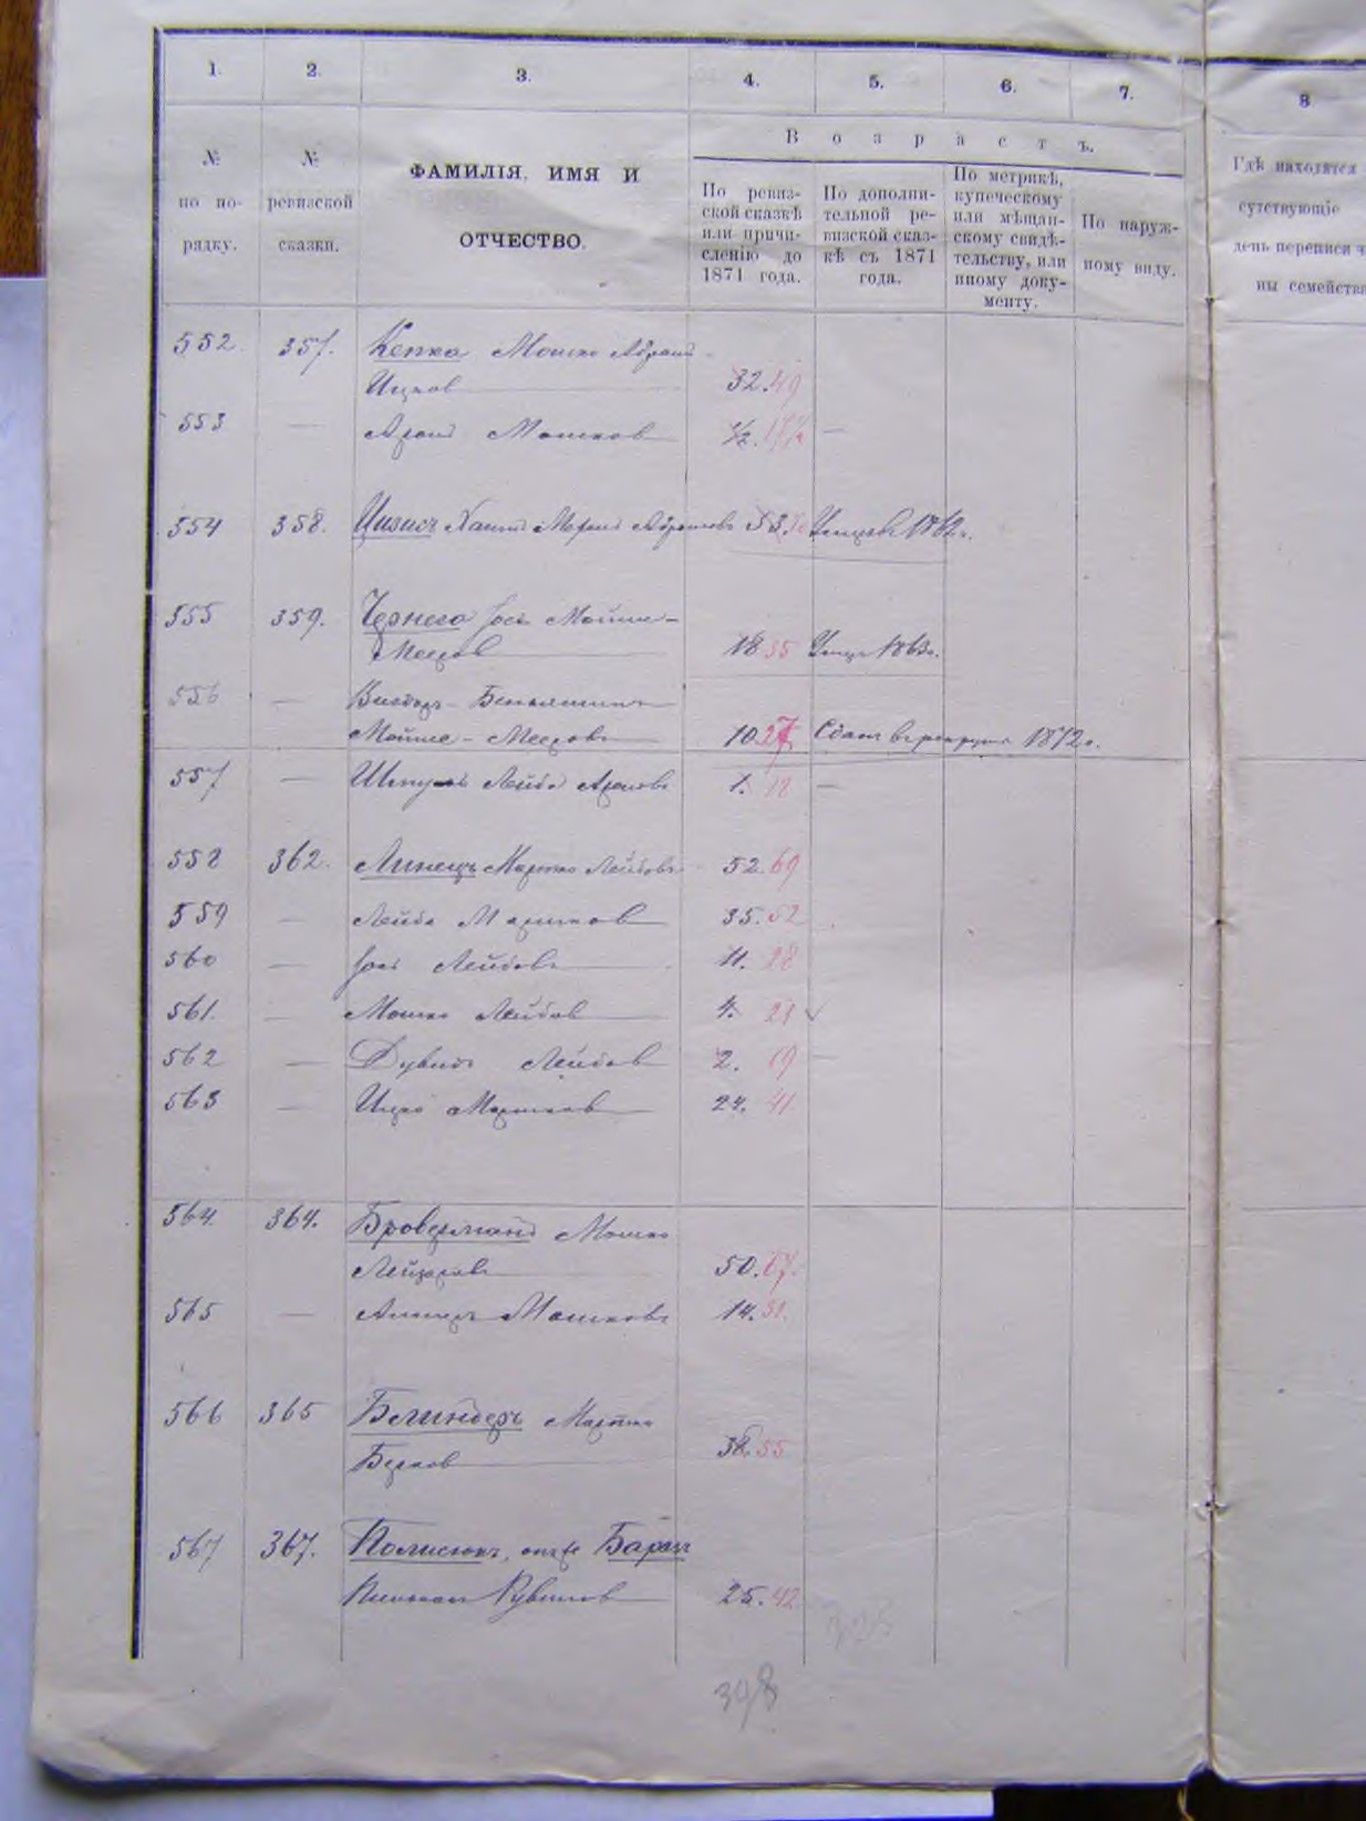 1. 2. 3. 4. 5. 6. 7. 8
№ по порядку.
№ ревизской сказки.
ФАМИЛІЯ, ИМЯ И ОТЧЕСТВО.
Возрастъ.
По ревиз-
ской сказкѣ
или причи-
сленію до
1871 года.
По дополни-
тельной ре-
визской сказ-
кѣ съ 1871
года.
По метрикѣ,
купеческому
или мѣщан-
скому свидѣ-
тельству, или
иному доку-
менту.
По наруж-
ному виду.
Гдѣ находятся
сутствующіе
день переписи ч
ны семейства
552. 357. Кепка Мошко Абрам
Ицков 32. 49
553 — Арон Мошков ½. 17½ —
554 358. Хаим Абрамовъ 53. Умеръ въ 1862 г.
555 359. Чернега Іось Мойше-
Мееров 18 35 Умеръ 1863 г.
556 — Вигдоръ - Беньяминъ
Мойше - Мееровъ 10. 27 Сдан в рекруты 1872 г.
557 — Шмуль Лейба Ароновъ 1. 18 —
558 362. Линецъ Мартко Лейбовъ 52. 69
559 — Лейба Мартков 35. 52
560 — Іось Лейбовъ 11. 28
561. — Мошко Лейбов 4. 21 ✓
562 — Дувидъ Лейбов 2. 19 —
563 — Ицко Мартков 24. 41
564. 364. Броверманъ Мошко
Лейзоровъ 50. 67.
565 — Мошковъ 14. 31.
566 365 Белиндеръ Мартко
Берков 38. 55
567 367. Полисюкъ, онъ же Баранъ
Рувинов 25. 42
398